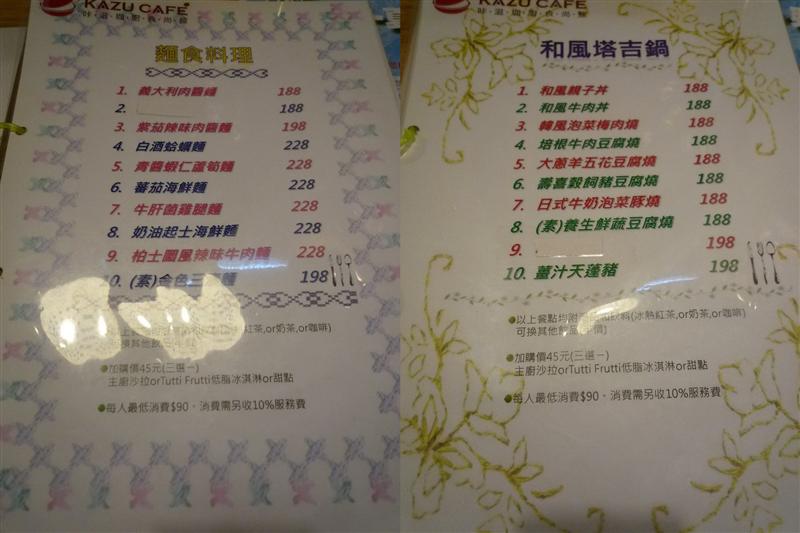 KAZU CAFE
麵食料理
1. 義大利肉醬麵 188
2. 188
3. 紫茄辣味肉醬麵 198
4. 白酒蛤蠣麵 228
5. 青醬蝦仁蘆筍麵 228
6. 蕃茄海鮮麵 228
7. 牛肝菌雞腿麵 228
8. 奶油起士海鮮麵 228
9. 柏士圖風辣味牛肉麵 228
10. (素)金色三 麵 198
茶,or奶茶,or咖啡)
可換其他飲品
●加購價45元(三選一)
主廚沙拉orTutti Frutti低脂冰淇淋or甜點
●每人最低消費$90，消費需另收10%服務費
KAZU CAFE
和風塔吉鍋
1. 和風親子丼 188
2. 和風牛肉丼 188
3. 韓風泡菜梅肉燒 188
4. 培根牛肉豆腐燒 188
5. 大蔥羊五花豆腐燒 188
6. 壽喜穀飼豬豆腐燒 188
7. 日式牛奶泡菜豚燒 188
8. (素)養生鮮蔬豆腐燒 188
9. 198
10. 薑汁天蓬豬 198
●以上餐點均附 飲料(冰熱紅茶,or奶茶,or咖啡)
可換其他飲品 價)
●加購價45元(三選一)
主廚沙拉orTutti Frutti低脂冰淇淋or甜點
●每人最低消費$90，消費需另收10%服務費